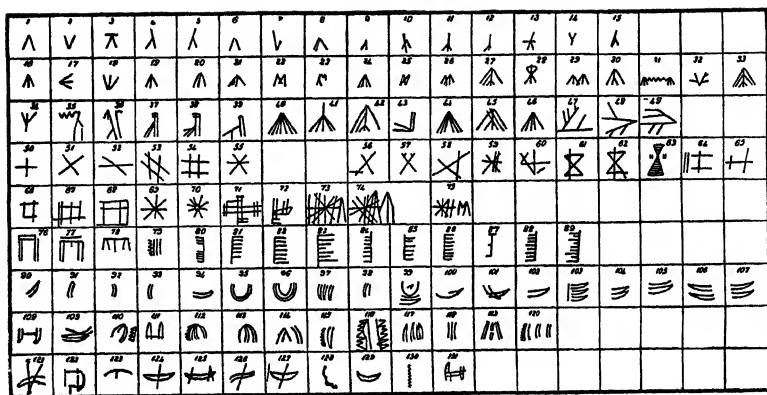 1 2 3 4 5 6 7 8 9 10 11 12 13 14 15
16 17 18 19 20 21 22 23 24 25 26 27 28 29 30 31 32 33
34 35 36 37 38 39 40 41 42 43 44 45 46 47 48 49
50 51 52 53 54 55 56 57 58 59 60 61 62 63 64 65
66 67 68 69 70 71 72 73 74 75
76 77 78 79 80 81 82 83 84 85 86 87 88 89
90 91 92 93 94 95 96 97 98 99 100 101 102 103 104 105 106 107
109 110 111 112 113 114 115 116 117 118 119 120
121 122 123 124 125 126 127 128 129 130 131